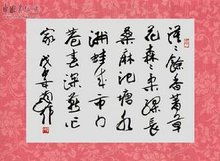 漠漠餘香著草
花森森柔緑長
桑麻池塘水
满蛙成市门
巷春深燕作
家